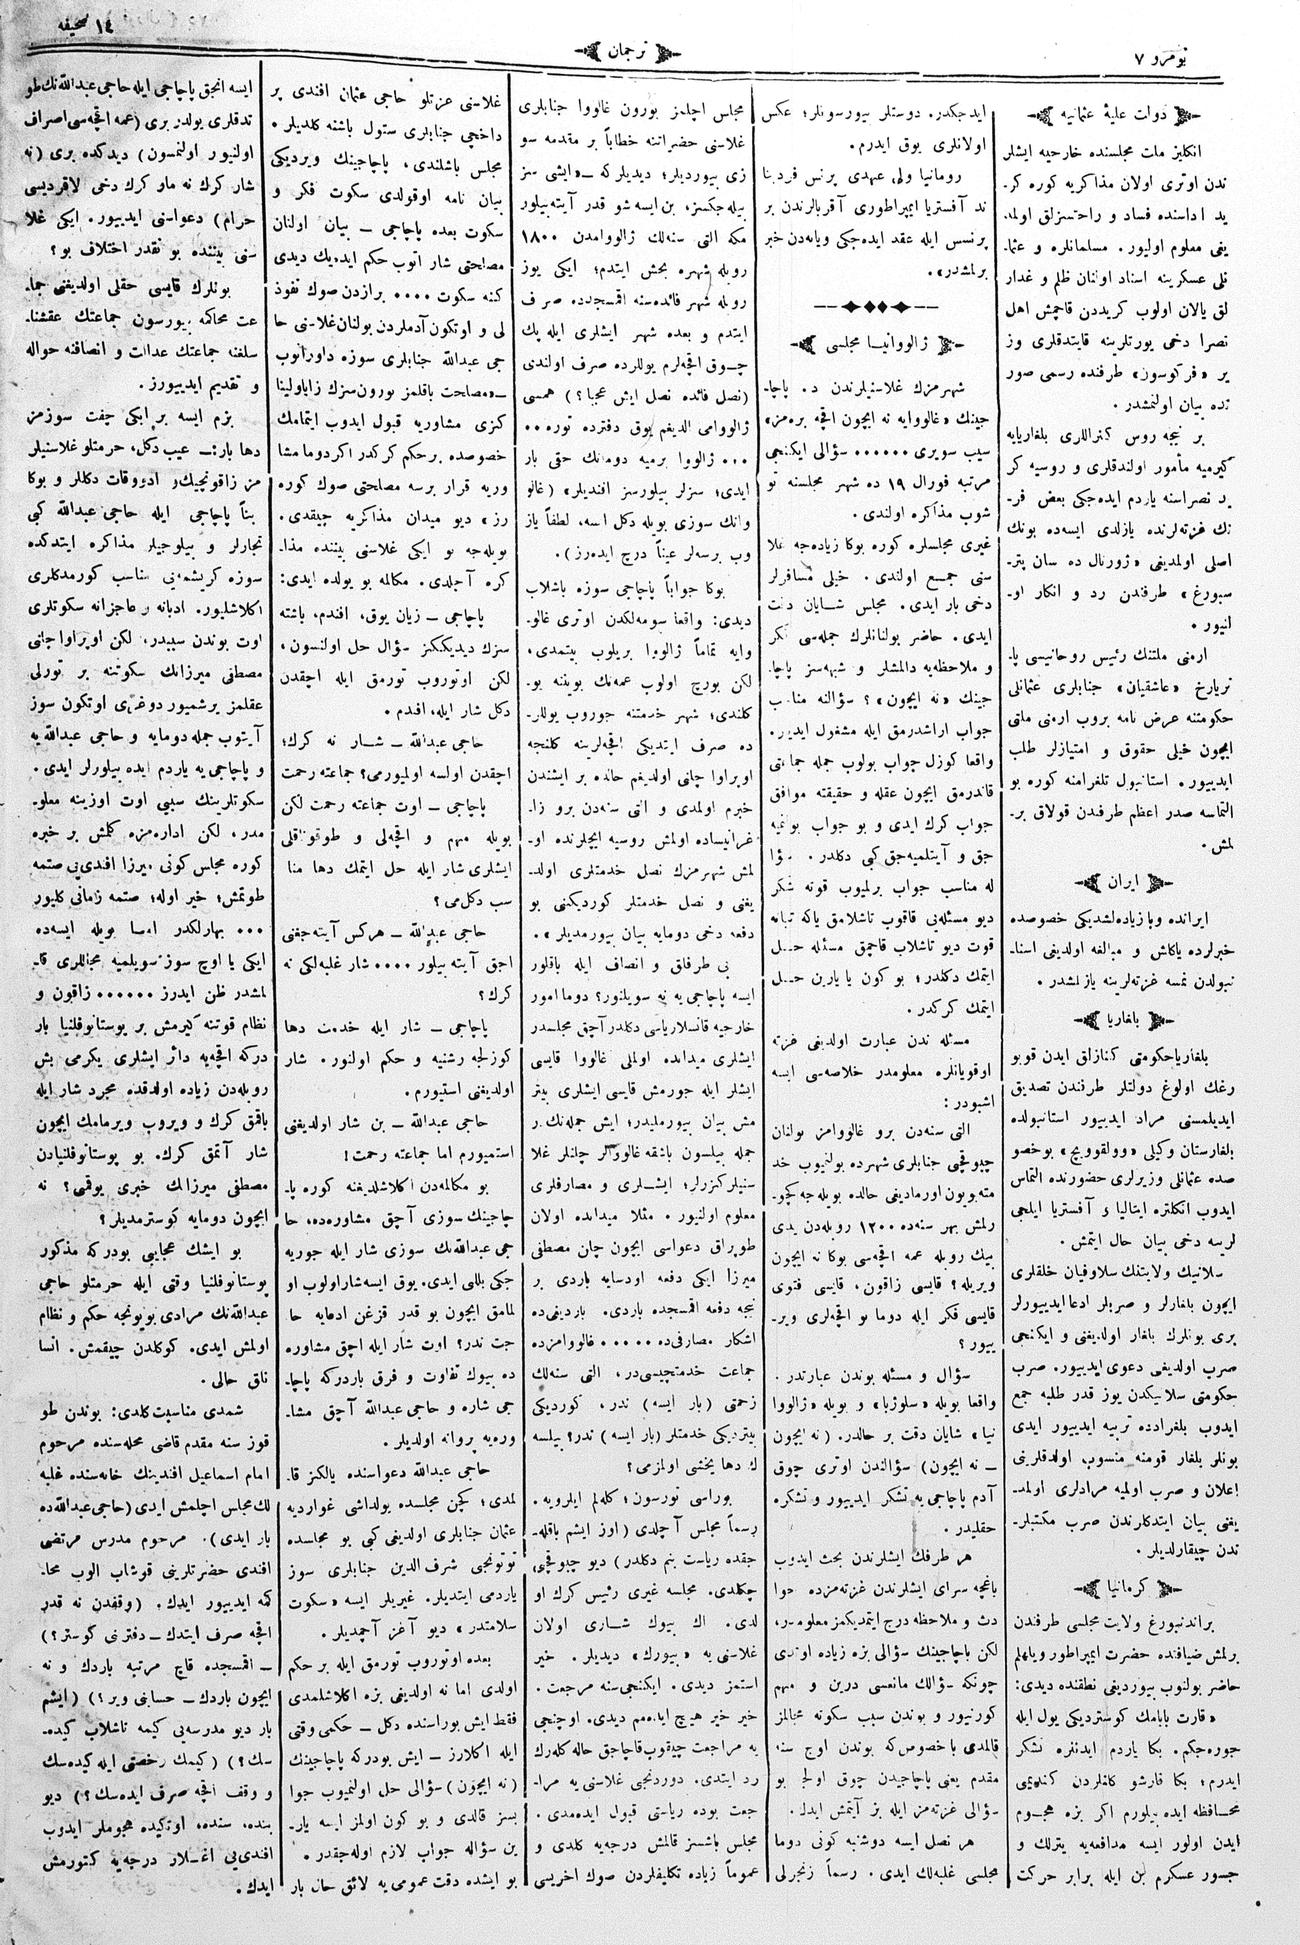 نومرو ٧
ترجمان
١٤ صحيفه
دولت عليهٔ عثمانيه
انكليز ملت مجلسنده خارجيه ايشلر
ندن اوترى اولان مذاكريه كوره كر۔
يد اداسنده فساد و راحتسزلق اولمد
يغى معلوم اوليور. مسلمانلره و عثما۔
نلى عسكرينه اسناد اولنان ظلم و غدار
لق يالان اولوب كريددن قاچمش اهل
نصرا دخى يورتلرينه قايتدقلرى وز
ير «فركوسون» طرفنده رسمى صور
تده بيان اولنمشدر.
بر نيچه روس كنراللرى بلغاريايه
كيرميه مأمور اولندقلرى و روسيه كر
يد نصراسنه ياردم ايده‌جكى بعض فر۔
نك غزته‌لرنده يازلدى ايسه‌ده بونك
اصلى اولمديغى «ژورنال ده سان پتر۔
سبورغ» طرفندن رد و انكار او۔
لنيور.
ارمنى ملتنك رئيس روحانيسى پا۔
تريارخ «عاشقيان» جنابلرى عثمانلى
حكومتنه عرض نامه يروب ارمنى ملتى
ايچون خيلى حقوق و امتيازلر طلب
ايدييور. استانبول تلغرامنه كوره بو
التماسه صدر اعظم طرفندن قولاق بر۔
لمش.
ايران
ايرانده وبا زياده‌لشديكى خصوصده
خبرلرده ياكلش و مبالغه اولديغى استا۔
نبولدن نمسه غزته‌لرينه يازلمشدر.
بلغاريا
بلغاريا حكومتى كنازلق ايدن قوبو
رغك اولوغ دولتلر طرفندن تصديق
ايديلمسنى مراد ايدييور استانبولده
بلغارستان وكيلى «وولقوويچ» بوخصو
صده عثمانلى وزيرلرى حضورنده التماس
ايدوب انكلتره ايتاليا و آفستريا ايلچى
لرسه دخى بيان حال ايتمش.
سلانيك ولايتنك سلاوفيان خلقلرى
ايچون بلغارلر و صربلر ادعا ايدييورلر
برى بونلرك بلغار اولديغنى و ايكنجى
صرب اولديغى دعوى ايدييور. صرب
حكومتى سلانيكدن يوز قدر طلبه جمع
ايدوب بلغرادده تربيه ايدييور ايدى
بونلر بلغار قومنه منسوب اولدقلرينى
اعلان و صرب اولميه مرادلرى اولمد۔
يغنى بيان ايتدكلرندن صرب مكتبلر۔
ندن چيقارلديلر.
كرمانيا
براندنبورغ ولايت مجلسى طرفندن
برلمش ضيافنده حضرت ايمپراطور ويلهلم
حاضر بولنوب بيورديغى نطقنده ديدى:
«قارت بابامك كوسترديكى يول ايله
جوره‌جكم. بكا ياردم ايدنلره تشكر
ايدرم؛ بكا قارشو كلنلردن كنديمى
محافظه ايده بيلورم اكر بزه هجوم
ايدن اولور ايسه مدافعه‌يه يترلك و
جسور عسكرم بن ايله برابر حركت
ايدجكدر. دوستلر بيورسونلر؛ عكس
اولانلرى يوق ايدرم.
رومانيا ولى عهدى پرنس فردينا
ند آفستريا ايمپراطورى آقربالرندن بر
پرنسس ايله عقد ايده‌جكى ويانه‌دن خبر
برلمشدر».
ژالووانيا مجلسى
شهرمزك غلاسنيلرندن د. پاچا۔
جينك «غالووايه نه ايچون اقچه بره‌مز»
سيب سويرى ...... سؤالى ايكنجى
مرتبه فورال ١٩ ده شهر مجلسنه قو
شوب مذاكره اولندى.
غيرى مجلسلره كوره بوكا زياده‌جه غلا
سنى جمع اولندى. خيلى مسافرلر
دخى بار ايدى. مجلس شايان دقت
ايدى. حاضر بولنانلرك جمله‌سى فكر
و ملاحظه‌يه دالمشلر و شبهه‌سز پاچا۔
جينك «نه ايچون»؟ سؤالنه مناسب
جواب اراشدرمق ايله مشغول ايدير.
واقعا كوزل جواب بولوب جمله جماعتى
قاندرمق ايچون عقله و حقيقته موافق
جواب كرك ايدى و بو جواب بولنميه
جق و آيتلميه‌جق كبى دكلدر. سؤا
له مناسب جواب برلميوب قوته شكر
ديو مسئله‌نى قاقوب تاشلامق ياكه تبانه
قوت ديو تاشلاب قاچمق مسئله حل
ايتمك دكلدر؛ بو كون يا يارين حل
ايتمك كركدر.
مسئله ندن عبارت اولديغى غزته
اوقويانلره معلومدر خلاصه‌سى ايسه
اشبودر:
التى سنه‌دن برو غالووامز بولنان
چبوقچى جنابلرى شهرده بولنيوب خد
مته بويون اورماديغى حالده بويله‌جه كچو۔
رلمش بهر سنه‌ده ١٢٠٠ روبله‌دن يدى
بيك روبله عمه اقچه‌سى بوكا نه ايچون
ويريله؟ قايسى زاقون، قايسى فتوى
قايسى فكر ايله دوما بو اقچه‌لرى وير۔
ييور؟
سؤال و مسئله بوندن عبارتدر.
واقعا بويله «سلوژبا» و بويله «ژالووا
نيا» شايان دقت بر حالدر. (نه ايچون
ـ نه ايچون) سؤالندن اوترى چوق
آدم پاچاجى‌يه تشكر ايدييور و تشكره
حقليدر.
هر طرفك ايشلرندن بحث ايدوب
باغچه سراى ايشلرندن غزته‌مزده حوا
دث و ملاحظه درج ايتمديكمز معلومدر،
لكن باچاجينك سؤالى بزه زياده اوتدى
چونكه سؤالك مانعسى درين و مهم
كورنيور و بوندن سبب سكوته مجالمز
قالمدى باخصوص كه بوندن اوچ سنه
مقدم يعنى پاچاجيدن چوق اولجه بو
سؤالى غزته‌مز ايله بز آيتمش ايدك.
هر نصل ايسه دوشنبه كونى دوما
مجلسى غلبه‌لك ايدى. رسماً زنجرلى
مجلس اچلمز بورون غالووا جنابلرى
غلاسنى حضراتنه خطاباً بر مقدمه سو
زى بيورديلر؛ ديديلر كه ـ «ايشى سز
بيله‌جكسز، بن ايسه شو قدر آيته بيلور
مكه التى سنه‌لك ژالووامدن ١٨٠٠
روبله شهره بخش ايتدم؛ ايكى يوز
روبله شهر فائده‌سنه اقمسجدده صرف
ايتدم و بعده شهر ايشلرى ايله پك
چوق اقچه‌لرم يوللرده صرف اولندى
(نصل فائده نصل ايش عجبا؟) همسى
ژالووامى الديغم يوق دفترده توره ..
... ژالووا برميه دومانك حقى بار
ايدى؛ سزلر بيلورسز افنديلر» (غالو
وانك سوزى بويله دكل اسه، لطفاً ياز
وب برسه‌لر عيناً درج ايده‌رز).
بوكا جواباً پاچاجى سوزه باشلاب
ديدى: واقعا سومه‌لكدن اوترى غالو۔
وايه تماماً ژالووا بريلوب بيتمدى،
لكن بورچ اولوب عمه‌نك بويننه بو۔
كلندى؛ شهر خدمتنه جوروب يوللر۔
ده صرف ايتديكى اقچه‌لرينه كلنجه
اوپراوا چلنى اولديغم حالده بر ايشندن
خبرم اولمدى و التى سنه‌دن برو زا۔
غرانيساده اولمش روسيه ايچلرنده او۔
لمش شهرمزك نصل خدمتلرى اولد۔
يغنى و نصل خدمتلر كورديكنى بو
دفعه دخى دومايه بيان بيورمديلر».
بى طرفلق و انصاف ايله باقلور
ايسه پاچاجى‌يه نه سويلنور؟ دوما امور
خارجيه قانسلارياسى دكلدر آچق مجلسدر
ايشلرى ميدانده اولملى غالووا قايسى
ايشلر ايله جورمش قايسى ايشلرى بيتر
مش بيان بيورمليدر؛ ايش جمله‌نك در
جمله بيلسون باشقه غالووالر چلنلر غلا
سنيلر كزرلر؛ ايشلرى و مصارفلرى
معلوم اولنيور. مثلا ميدانده اولان
طوپراق دعواسى ايچون چان مصطفى
ميرزا ايكى دفعه اودسايه باردى بر
نيچه دفعه اقمسجده باردى. بارديغى‌ده
اشكار مصارفى‌ده ..... غالووامزده
جماعت خدمتچيسى‌در، التى سنه‌لك
زحمتى (بار ايسه) ندر، كورديكى
بيترديكى خدمتلر (بار ايسه) ندر؟ بيلسه
ك دها يخشى اولمزمى؟
بوراسى تورسون؛ كله‌لم ايلرويه.
رسماً مجلس آچلدى (اوز ايشم باقله۔
جقده رياست بنم دكلدر) ديو چبوقچى
چكلدى. مجلسه غيرى رئيس كرك او
لدى. اك بيوك شارى اولان
غلاسنى به «بيورك» ديديلر. خير
استمز ديدى. ايكنجى‌سنه مرجعت.
خير خير هيچ ايده‌مم ديدى. اوچنجى
يه مراجعت چيقوب قاچاجق حاله كله‌رك
رد ايتدى. دوردنجى غلاسنى يه مرا۔
جعت بوده رياستى قبول ايده‌مدى.
مجلس باشسز قالمش درجه‌يه كلدى و
عموماً زياده تكليفلردن صوك اخريسى
غلاسنى عزتلو حاجى عثمان افندى پر
داخچى جنابلرى ستول باشنه كلديلر.
مجلس باشلندى، پاچاجينك ويرديكى
بيان نامه اوقولدى سكوت فكر و
سكوت بعده پاچاجى ـ بيان اولنان
مصلحتى شار اتوب حكم ايده‌يك ديدى
كنه سكوت .... برازدن صوك نفوذ
لى و اوتكون آدملردن بولنان غلاسنى حا
جى عبدالله جنابلرى سوزه داورانوب
ـ «مصلحت باقلمز بورون سزك زاياولينا
كزى مشاوريه قبول ايدوب ايتمامك
خصوصده بر حكم كركدر اكر دوما مشا
وريه قرار برسه مصلحتى صوك كوره
رز» ديو ميدان مذاكريه چيقدى.
بويله‌جه بو ايكى غلاسنى بيننده مذا۔
كره آچلدى. مكالمه بو يولده ايدى:
پاچاجى ـ زيان يوق، افندم، باشته
سزك ديديككز سؤال حل اولنسون،
لكن اوتوروب تورمق ايله اچقدن
دكل شار ايله، افندم.
حاجى عبدالله ـ شار نه كرك؛
اچقدن اولسه اولميورمى؟ جماعته رحمت
پاچاجى ـ اوت جماعته رحمت لكن
بويله مهم و اقچه‌لى و طوقوناقلى
ايشلرى شار ايله حل ايتمك دها منا
سب دكلمى؟
حاجى عبدالله ـ هركس آيته‌جغنى
اجق آيته بيلور .... شار غلبه‌لكى نه
كرك؟
پاچاجى ـ شار ايله خدمت دها
كوزلجه رشنيه و حكم اولنور. شار
اولديغنى استيورم.
حاجى عبدالله ـ بن شار اولديغنى
استميورم اما جماعته رحمت!
بو مكالمه‌دن اكلاشلديغنه كوره پا۔
چاجينك سوزى آچق مشاوره‌ده، حا
جى عبدالله‌نك سوزى شار ايله جوريه
جكى بللى ايدى. يوق ايسه شار اولوب او
لمامق ايچون بو قدر قزغن ادعايه حا
جت ندر؟ اوت شار ايله اچق مشاوره
ده بيوك تفاوت و فرق باردركه پاچا۔
جى شاره و حاجى عبدالله آچق مشا۔
وره‌يه پروانه اولديلر.
حاجى عبدالله دعواسنده يالكز قا۔
لمدى؛ كچن مجلسده يولداشى غوارديه
عثمان جنابلرى اولديغى كبى بو مجلسده
توتونجى شرف الدين جنابلرى سوز
ياردمى ايتديلر. غيريلر ايسه «سكوت
سلامتدر» ديو آغز آچمديلر.
بعده اوتوروب تورمق ايله بر حكم
اولدى اما نه اولديغى بزه اكلاشلمدى
فقط ايش بوراسنده دكل ـ حكمى وقتى
ايله اكلارز ـ ايش بودركه پاچاجينك
(نه ايچون) سؤالى حل اولنميوب جوا
بسز قالدى و بو كون اولمز ايسه يار۔
ين سؤاله جواب لازم اوله‌جقدر.
بو ايشده دقت عمومى يه لائق حال بار
ايسه انجق پاچاجى ايله حاجى عبدالله‌نك طو
تدقلرى يولدر برى (عمه اقچه‌سى اصراف
اولنيور اولنمسون) ديدكده برى (نه
شار كرك نه ماو كرك دخى لاقرديسى
حرام) دعواسنى ايدييور. ايكى غلا
سنى بيننده بو نقدر اختلاف بو؟
بونلرك قايسى حقلى اولديغنى جما۔
عت محاكمه بيورسون جماعتك عقشنا۔
سلغنه جماعتك عدالت و انصافنه حواله
و تقديم ايدييورز.
بزم ايسه بر ايكى چفت سوزمز
دها بار:ـ عيب دكل، حرمتلو غلاسنيلر
مز زاقونچيك و ادووقات دكللر و بوكا
بناً پاچاجى ايله حاجى عبدالله كبى
تجارلر و بيلوجيلر مذاكره ايتدكده
سوزه كريشمه‌نى مناسب كورمدكلرى
اكلاشليور. ادبانه و عاجزانه سكوتلرى
اوت بوندن سببدر، لكن اوپراوا چلنى
مصطفى ميرزانك سكوتنه بر تورلى
عقلمز يرشميور دوغرى اوتكون سوز
آيتوب جمله دومايه و حاجى عبدالله يه
و پاچاجى يه ياردم ايده بيلورلر ايدى.
سكوتلرينك سببى اوت اوزينه معلو۔
مدر، لكن اداره‌مزه كلمش بر خبره
كوره مجلس كونى ميرزا افندى‌يى صتمه
طوتمش؛ خير اوله؛ صتمه زمانى كليور
... بهارلكدر امما بويله ايسه‌ده
ايكى يا اوچ سوز سويلميه مجاللرى قا۔
لمشدر ظن ايدرز ...... زاقون و
نظام قوتنه كيرمش بر پوستانوفلنيا بار
دركه اقچه‌يه دائر ايشلرى يكرمى بش
روبله‌دن زياده اولدقده مجرد شار ايله
باقمق كرك و ويروب ويرمامك ايچون
شار آتمق كرك. بو پوستانوفلنيادن
مصطفى ميرزانك خبرى يوقمى؟ نه
ايچون دومايه كوسترمديلر؟
بو ايشك عجايبى بودركه مذكور
پوستانوفلنيا وقتى ايله حرمتلو حاجى
عبدالله‌نك مرادى بويونجه حكم و نظام
اولمش ايدى. كوكلدن چيقمش. انسا
نلق حالى.
شمدى مناسبت كلدى: بوندن طو
قوز سنه مقدم قاضى محله‌سنده مرحوم
امام اسماعيل افندينك خانه‌سنده غلبه
لك مجلس اچلمش ايدى (حاجى عبدالله ده
بار ايدى). مرحوم مدرس مرتضى
افندى حضرتلرينى قوشاب الوب محا۔
كمه ايدييور ايدك. (وقفدن نه قدر
اقچه صرف ايتدك ـ دفترنى كوستر؟)
ـ اقمسجده قاچ مرتبه باردك و نه
ايچون باردك ـ حسابنى وير؟) (ايشم
بار ديو مدرسه‌نى كيمه تاشلاب كيده۔
سك؟) (كيمك رخصتى ايله كيده‌سك
و وقف اقچه صرف ايده‌سك؟) ديو
بنده، سنده، اوتكيده هجوملر ايدوب
افندى‌يى اغلار درجه‌يه كتورمش
ايدك.